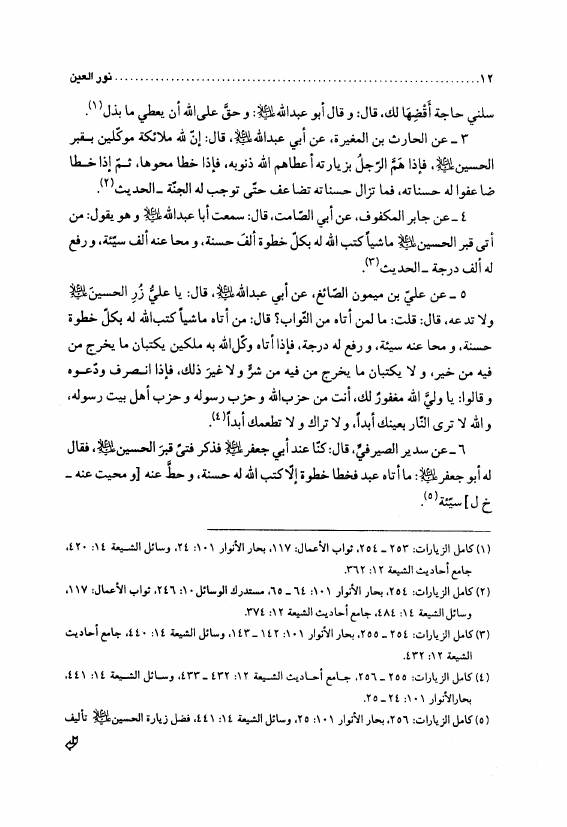 ١٢ ........................................................................ نور العين
سلني حاجة أَقْضِهَا لك، قال: و قال أبو عبدالله عليه السلام: و حقَّ على الله أن يعطي ما بذل(١).
٣ ـ عن الحارث بن المغيرة، عن أبي عبدالله عليه السلام، قال: إنّ لله ملائكة موكّلين بـقبر
الحسين عليه السلام، فإذا هَمَّ الرّجلُ بزيارته أعطاهم الله ذنوبه، فإذا خطا محوها، ثـمّ إذا خـطا
ضاعفوا له حسناته، فما تزال حسناته تضاعف حتّى توجب له الجنّة ـ الحديث(٢).
٤ ـ عن جابر المكفوف، عن أبي الصّامت، قال: سمعت أبا عبدالله عليه السلام و هو يقول: من
أتى قبر الحسين عليه السلام ماشياً كتب الله له بكلّ خطوة ألفَ حسنة، و محا عنه ألف سيّئة، و رفع
له ألف درجة ـ الحديث(٣).
٥ ـ عن عليّ بن ميمون الصّائغ، عن أبي عبدالله عليه السلام، قال: يا عليُّ زُرِ الحسينَ عليه السلام
ولا تدعه، قال: قلت: ما لمن أتاه من الثّواب؟ قال: من أتاه ماشياً كتب الله له بكلّ خطوة
حسنة، و محا عنه سيئة، و رفع له درجة، فإذا أتاه وكّل الله به ملكين يكتبان ما يخرج من
فيه من خير، و لا يكتبان ما يخرج من فيه من شرٍّ و لا غيرَ ذلك، فإذا انـصرف ودّعـوه
و قالوا: يا وليَّ الله مغفورٌ لك، أنت من حزب الله و حزب رسوله و حزب أهل بيت رسوله،
والله لا ترى النّار بعينك أبداً، و لا تراك و لا تطعمك أبداً(٤).
٦ ـ عن سدير الصيرفيّ، قال: كنّا عند أبي جعفر عليه السلام فذكر فتىً قبرَ الحسين عليه السلام، فقال
له أبو جعفر عليه السلام: ما أتاه عبد فخطا خطوة إلّا كتب الله له حسنة، و حطَّ عنه [و محيت عنه ـ
خ ل] سيّئة(٥).
(١) كامل الزيارات: ٢٥٣ ـ ٢٥٤، ثواب الأعمال: ١١٧، بحار الأنوار ١٠١: ٢٤، وسائل الشيعة ١٤: ٤٢٠،
جامع أحاديث الشيعة ١٢: ٣٦٢.
(٢) كامل الزيارات: ٢٥٤، بحار الأنوار ١٠١: ٦٤ ـ ٦٥، مستدرك الوسائل ١٠: ٢٤٦، ثواب الأعمال: ١١٧،
وسائل الشيعة ١٤: ٤٨٤، جامع أحاديث الشيعة ١٢: ٣٧٤.
(٣) كامل الزيارات: ٢٥٤ ـ ٢٥٥، بحار الأنوار ١٠١: ١٤٢ ـ ١٤٣، وسائل الشيعة ١٤: ٤٤٠، جامع أحاديث
الشيعة ١٢: ٤٣٢.
(٤) كامل الزيارات: ٢٥٥ ـ ٢٥٦، جـامع أحـاديث الشـيعة ١٢: ٤٣٢ ـ ٤٣٣، وسـائل الشـيعة ١٤: ٤٤١،
بحارالأنوار ١٠١: ٢٤ ـ ٢٥.
(٥) كامل الزيارات: ٢٥٦، بحار الأنوار ١٠١: ٢٥، وسائل الشيعة ١٤: ٤٤١، فضل زيارة الحسين عليه السلام تأليف